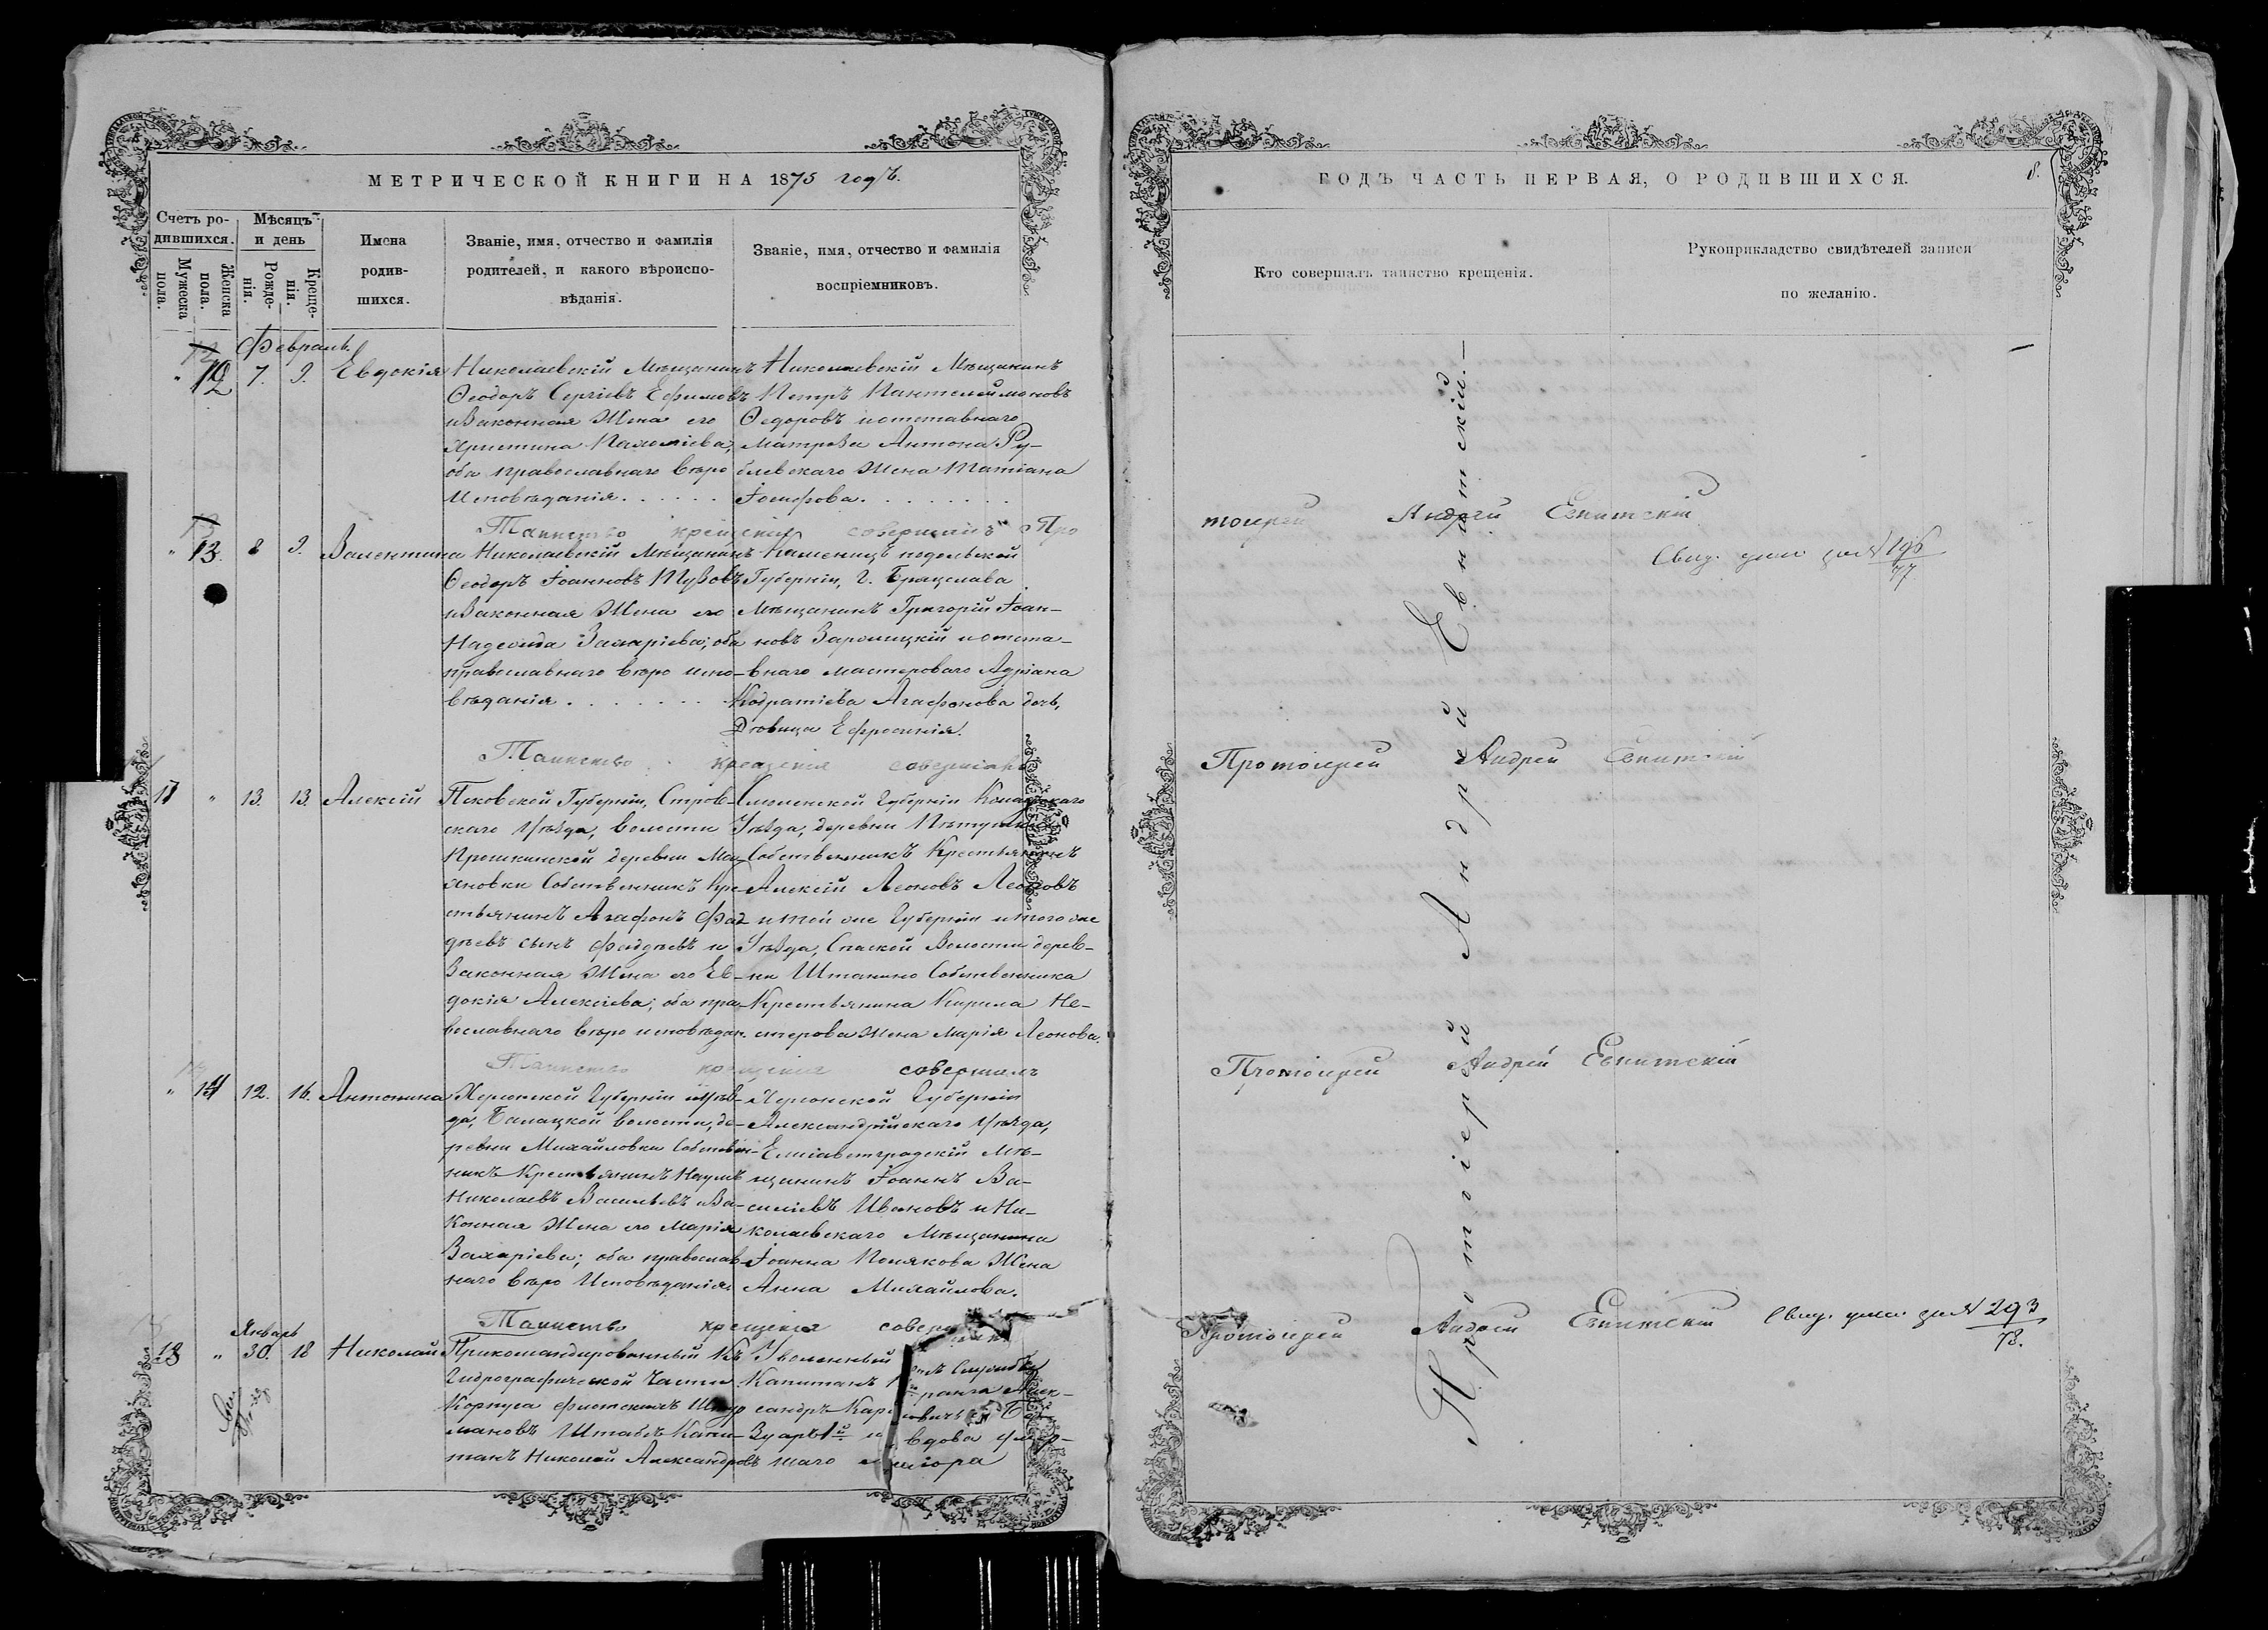 МЕТРИЧЕСКОЙ КНИГИ НА 1875 годъ.
Счетъ ро-
дившихся.
Мужеска
пола.
Женска
пола.
Мѣсяцъ
и день
Рожде-
нія.
Креще-
нія.
Имена
родив-
шихся.
Званіе, имя, отчество и фамилія
родителей, и какого вѣроиспо-
вѣданія.
Званіе, имя, отчество и фамилія
воспріемниковъ.
Февраль.
" 12 7. 9. Евдокія
Николаевскій Мѣщанинъ
Ѳеодоръ Сергіевъ Ефимовъ
и Законная Жена его
Христина
оба православнаго вѣро
Исповѣданія.
Николаевскій Мѣщанинъ
Петръ Пантелеймоновъ
Ѳедоровъ и отставнаго
Матроза Антона Ру-
блевскаго Жена Татіана
Іосифова.
Таинство крещенія совершилъ Про
" 13. 8 9. Валентина
Николаевскій Мѣщанинъ
Ѳеодоръ Іоанновъ
и Законная Жена его
Надежда Захаріева; оба
православнаго вѣро испо-
вѣданія.
Каменецъ подольской
Губерніи, г. Брацлава
Мѣщанинъ Григорій Іоан-
новъ и отста-
внаго мастероваго Адріана
Кодратіева Агафонова дочь,
Дѣвица Ефросинія.
Таинство крещенія совершилъ
" 13. 13. Алексій
Псковской Губерніи, Остров-
скаго Уѣзда, волости
деревни Ма-
яновки Собственникъ Кре-
стьянинъ Агафонъ Фад-
дѣевъ сынъ Фаддѣевъ и
Законная Жена его Ев-
докія Алексіева; оба пра-
вославнаго вѣро исповѣдан.
Смоленской Губерніи
Уѣзда, деревни
Собственникъ Крестьянинъ
Алексій Леоновъ Леоновъ
и той же Губерніи и того же
Уѣзда, Спаской Волости дерев-
ни Штанино Собственника
Крестьянина Кирила Не-
стерова Жена Марія Леонова.
Таинство крещенія совершилъ
" 14 12. 16. Антонина
Херсонской Губерніи и Уѣз-
да, Балацкой волости, де-
ревни Михайловки Собствен-
никъ Крестьянинъ Наумъ
Николаевъ Васильевъ и За-
конная Жена его Марія
Захаріева; оба православ-
наго вѣро Исповѣданія.
Херсонской Губерніи
Александрійскаго Уѣзда,
Елисаветградскій Мѣ-
щанинъ Іоаннъ Ва-
силіевъ Ивановъ и Ни-
колаевскаго Мѣщанина
Іоанна Полякова Жена
Анна Михайлова.
Таинство крещенія совершилъ
Январь
" 30. 18 Николай
Прикомандированный Къ
Гидрографической Части
Корпуса флотскихъ Штур
мановъ Штабсъ Капи-
танъ Николай Александровъ
Уволенный
Капитанъ ранга Алек-
сандръ
и вдова умер-
шаго
ГОДЪ ЧАСТЬ ПЕРВАЯ, О РОДИВШИХСЯ.
8.
Кто совершалъ таинство крещенія.
Рукоприкладство свидѣтелей записи
по желанію.
тоіерей Андрей Евнитскій
Свид. дано за № 196
77
Протоіерей Андрей Евнитскій
Протоіерей Андрей Евнитскій
Протоіерей Андрей Евнитскій
Свид. дано за № 293
78.
Протоіерей Андрей Евнитскій.